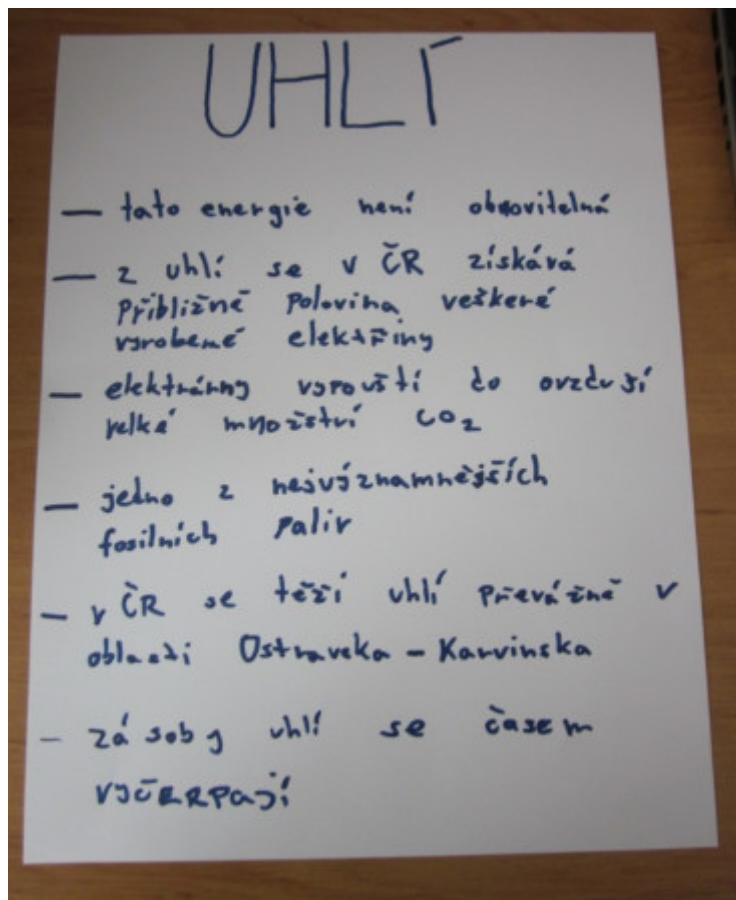 UHLÍ
— tato energie není obnovitelná
— z uhlí se v ČR získává
přibližně polovina veškeré
vyrobené elektřiny
— elektrárny vypouští do ovzduší
velké množství CO₂
— jedno z nejvýznamnějších
fosilních paliv
— v ČR se těží uhlí převážně v
oblasti Ostravska - Karvinska
- zásoby uhlí se časem
vyčERPají